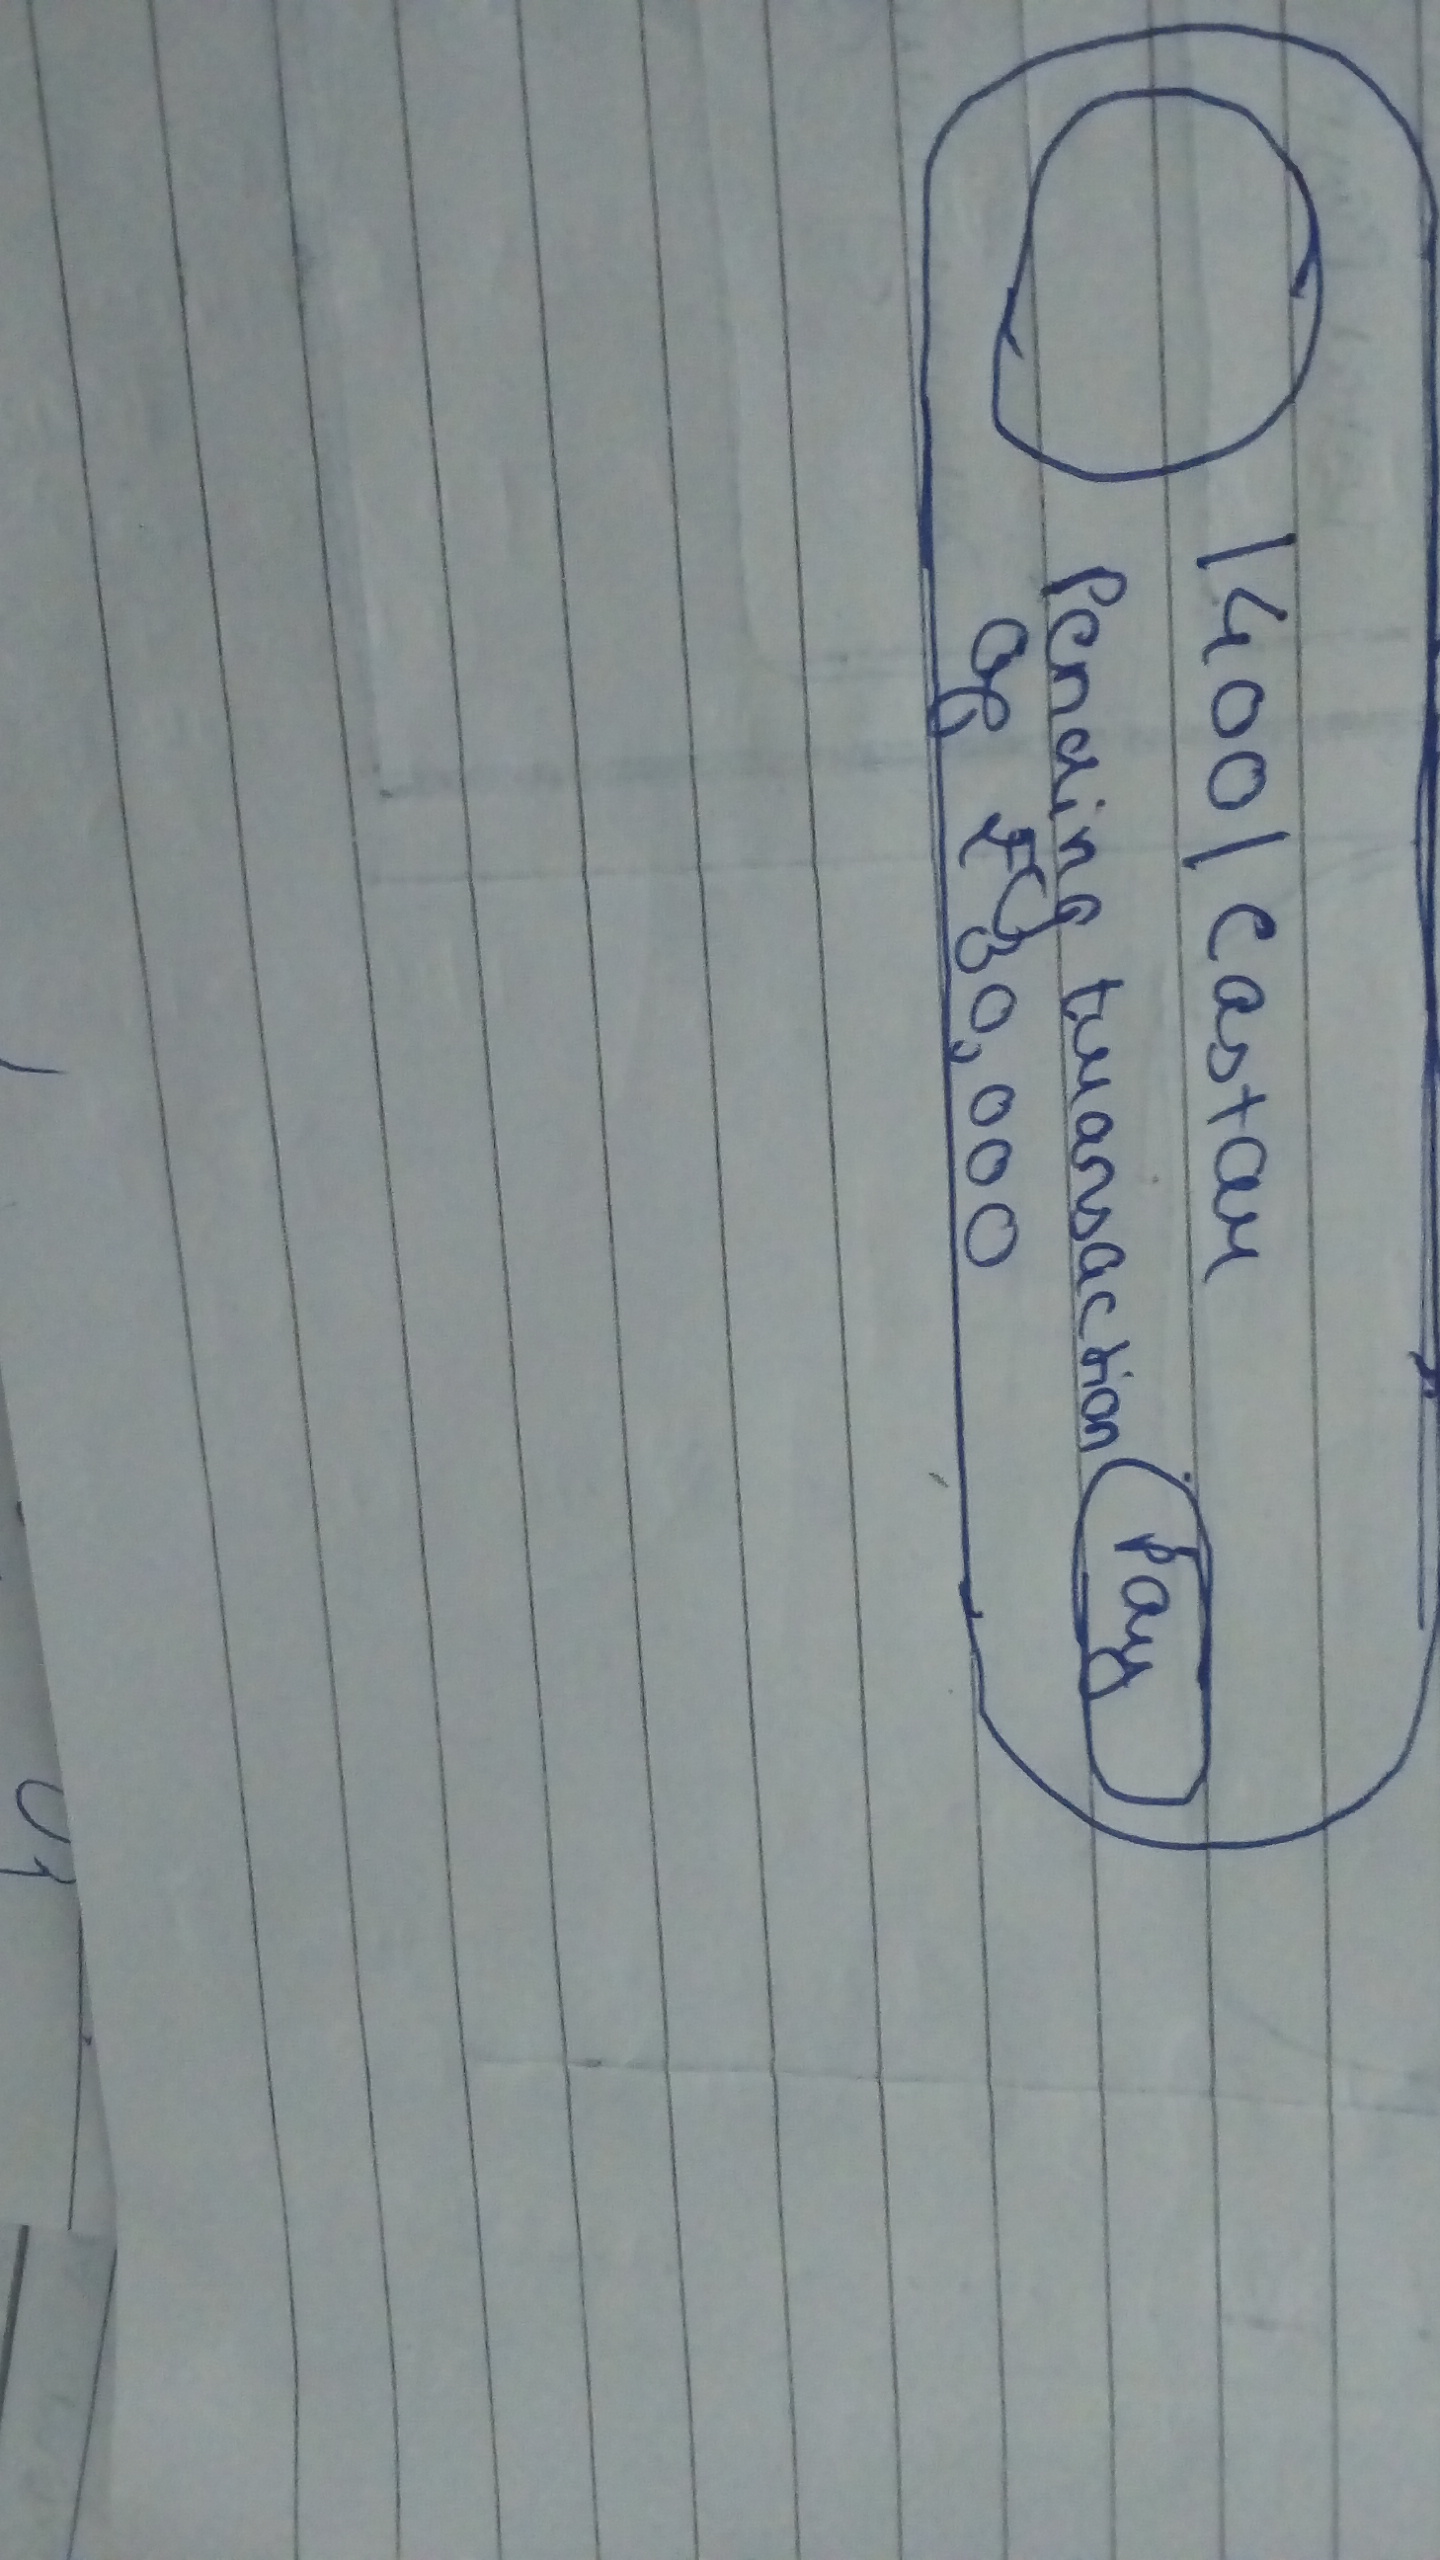 1400/castar
Pending transaction
of ₹30,000
Pay